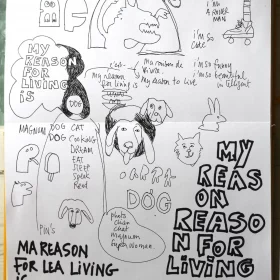 I'M
A ROLLER
MAN
I'M SO
CUTE
MY
REASON
FOR
LIVING
IS
DOG
c'est
ma raison de
vivre.
my reason
for living is
my reason to live
I'm so funny
I'm so beautiful
MAGNUM
DOG
DOG
CAT
COOKING
DREAM
EAT
SLEEP
SPEAK
READ
DOG
photo
chien
chat
magnum
super woman.
PIN'S
MY
REAS
ON
REASO
N FOR
LIVING
MA REASON
FOR LEA LIVING